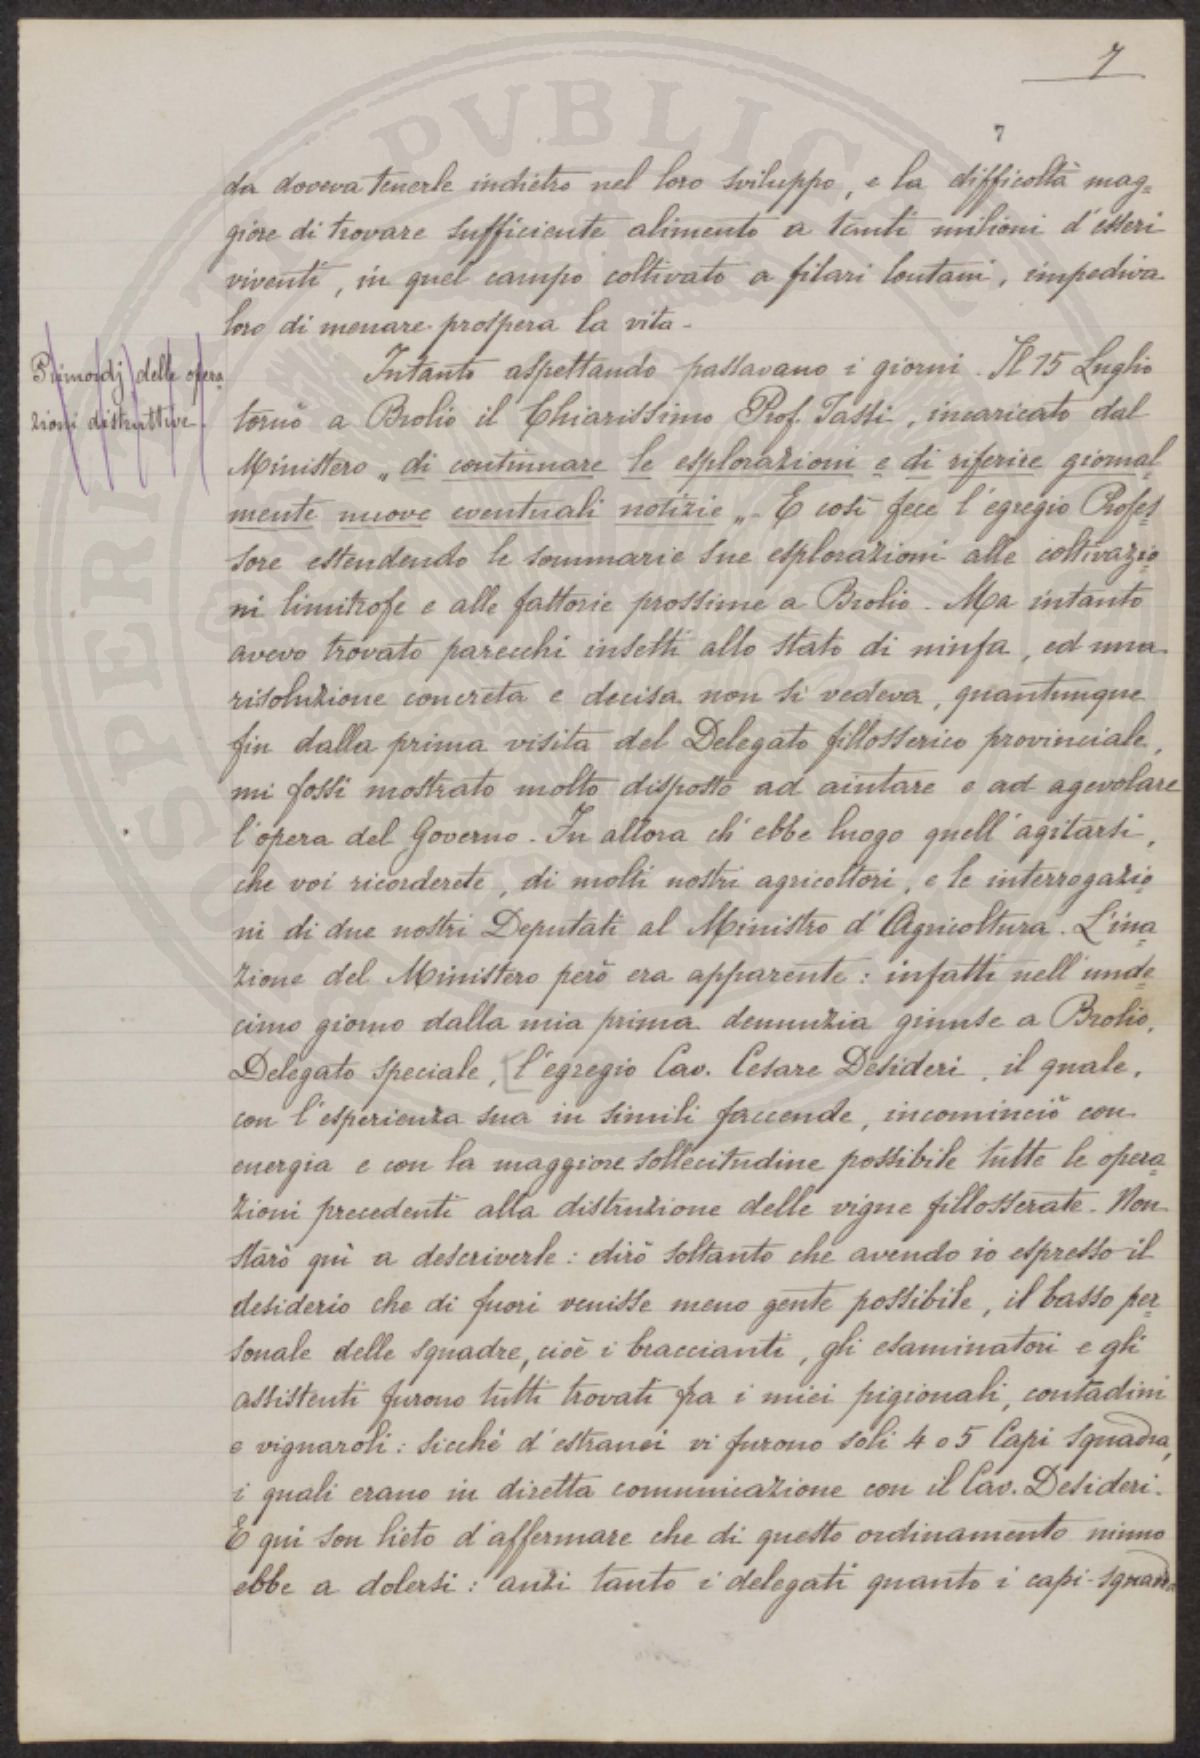 7
7
da doveva tenerle indietro nel loro sviluppo, e la difficoltà mag=
giore di trovare sufficiente alimento a tanti milioni d'esseri
viventi, in quel campo coltivato a filari lontani, impediva
loro di menare prospera la vita -
Primordj delle opera=
zioni distruttive.
Intanto aspettando passavano i giorni. Il 15 Luglio
tornò a Brolio il Chiarissimo Prof. Tassi, incaricato dal
Ministero „ di continuare le esplorazioni e di riferire giornal
mente nuove eventuali notizie „ - E così fece l'egregio Profes
sore estendendo le sommarie sue esplorazioni alle coltivazio
ni limitrofe e alle fattorie prossime a Brolio - Ma intanto
avevo trovato parecchi insetti allo stato di ninfa, ed una
risoluzione concreta e decisa non si vedeva, quantunque
fin dalla prima visita del Delegato fillosserico provinciale,
mi fossi mostrato molto disposto ad aiutare e ad agevolare
l'opera del Governo - In allora ch'ebbe luogo quell'agitarsi,
che voi ricorderete, di molti nostri agricoltori, e le interrogazio
ni di due nostri Deputati al Ministro d'Agricoltura. L'ina=
zione del Ministero però era apparente: infatti nell'unde=
cimo giorno dalla mia prima denunzia giunse a Brolio,
Delegato speciale, [l'egregio Cav. Cesare Desideri, il quale,
con l'esperienza sua in simili faccende, incominciò con
energia e con la maggiore sollecitudine possibile tutte le opera=
zioni precedenti alla distruzione delle vigne fillosserate - Non
starò quì a descriverle: dirò soltanto che avendo io espresso il
desiderio che di fuori venisse meno gente possibile, il basso per=
sonale delle squadre, cioè i braccianti, gli esaminatori e gli
assistenti furono tutti trovati fra i miei pigionali, contadini
e vignaroli: sicchè d'estranei vi furono soli 4 o 5 Capi Squadra,
i quali erano in diretta comunicazione con il Cav. Desideri.
E qui son lieto d'affermare che di questo ordinamento niuno
ebbe a dolersi: anzi tanto i delegati quanto i capi-squadra